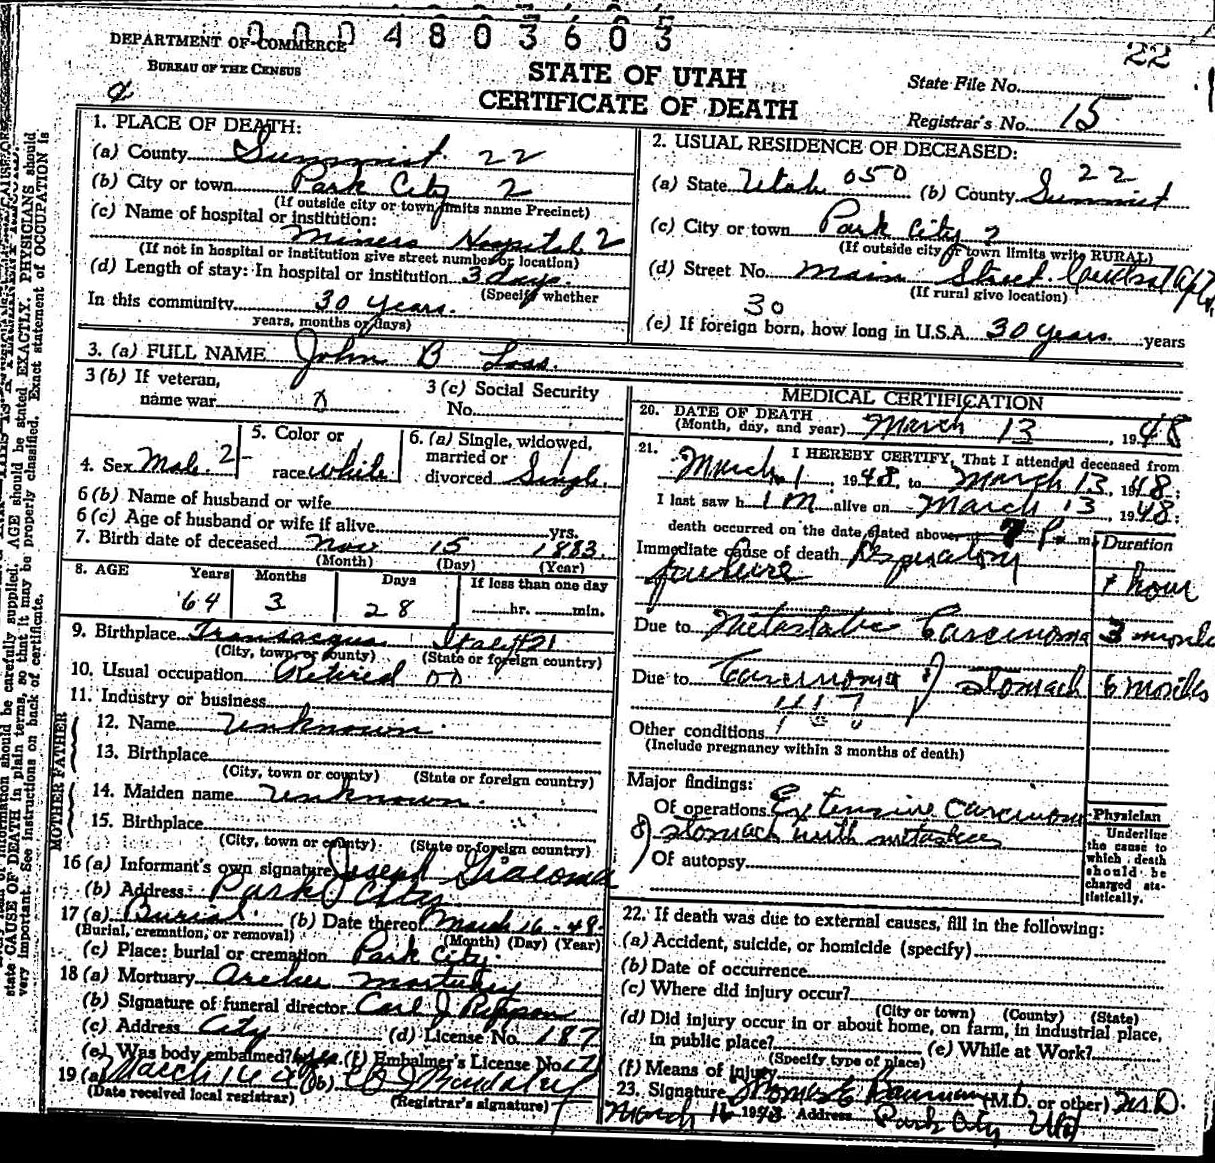 0 0 0 4 8 0 3 6 0 3
22
DEPARTMENT OF COMMERCE
BUREAU OF THE CENSUS
STATE OF UTAH
CERTIFICATE OF DEATH
State File No.
Registrar's No. 15
1. PLACE OF DEATH:
(a) County Summit 22
(b) City or town Park City 2
(If outside city or town limits name Precinct)
(c) Name of hospital or institution:
Miners Hospital 2
(If not in hospital or institution give street number or location)
(d) Length of stay: In hospital or institution 3 days.
(Specify whether
In this community 30 years.
years, months or days)
2. USUAL RESIDENCE OF DECEASED:
(a) State Utah 050 (b) County Summit 22
(c) City or town Park City 2
(If outside city or town limits write RURAL)
(d) Street No. Main Street. Central Apts.
(If rural give location)
30
(e) If foreign born, how long in U.S.A. 30 years. years
3. (a) FULL NAME John B Loss.
3 (b) If veteran,
name war
3 (c) Social Security
No.
4. Sex Male. 2
5. Color or
race White
6. (a) Single, widowed,
married or
divorced Single. 1
6 (b) Name of husband or wife
6 (c) Age of husband or wife if alive yrs.
7. Birth date of deceased Nov 15 1883.
(Month) (Day) (Year)
8. AGE Years Months Days If less than one day
64 3 28 hr. min.
9. Birthplace Transacqua Italy 421
(City, town or county) (State or foreign country)
10. Usual occupation Retired 00
11. Industry or business
FATHER
12. Name Unknown.
13. Birthplace
(City, town or county) (State or foreign country)
MOTHER
14. Maiden name Unknown.
15. Birthplace
(City, town or county) (State or foreign country)
16 (a) Informant's own signature Joseph Giacoma
(b) Address: Park City
17 (a) Burial. (b) Date thereof March 16 - 48
(Burial, cremation, or removal) (Month) (Day) (Year)
(c) Place: burial or cremation Park City.
18 (a) Mortuary Archer Mortuary
(b) Signature of funeral director Carl J Rippon
(c) Address City (d) License No. 187
(e) Was body embalmed? yes (f) Embalmer's License No 17
19 (a) March 16 48 (b)
(Date received local registrar) (Registrar's signature)
MEDICAL CERTIFICATION
20. DATE OF DEATH
(Month, day, and year) March 13, 1948
21. I HEREBY CERTIFY, That I attended deceased from
March 1, 1948, to March 13, 1948;
I last saw h im alive on March 13, 1948;
death occurred on the date stated above at 7 P. m.
Duration
Immediate cause of death Respiratory
failure 1 hour
Due to Metastatic Carcinoma 3 months
Due to Carcinoma of stomach 6 months
Other conditions
(Include pregnancy within 3 months of death)
Major findings:
Of operations Extensive carcinoma
of stomach with metastases
Of autopsy
Physician
Underline
the cause to
which death
should be
charged sta-
tistically.
22. If death was due to external causes, fill in the following:
(a) Accident, suicide, or homicide (specify)
(b) Date of occurrence
(c) Where did injury occur?
(City or town) (County) (State)
(d) Did injury occur in or about home, on farm, in industrial place,
in public place? (e) While at Work?
(Specify type of place)
(f) Means of injury
23. Signature Thomas E Bauman (M.D. or other) M.D.
March 16 1948 Address Park City Utah
state CAUSE OF DEATH in plain terms, so that it may be properly classified. Exact statement of OCCUPATION is
very important. See instructions on back of certificate.
information should be carefully supplied. AGE should be stated EXACTLY. PHYSICIANS should